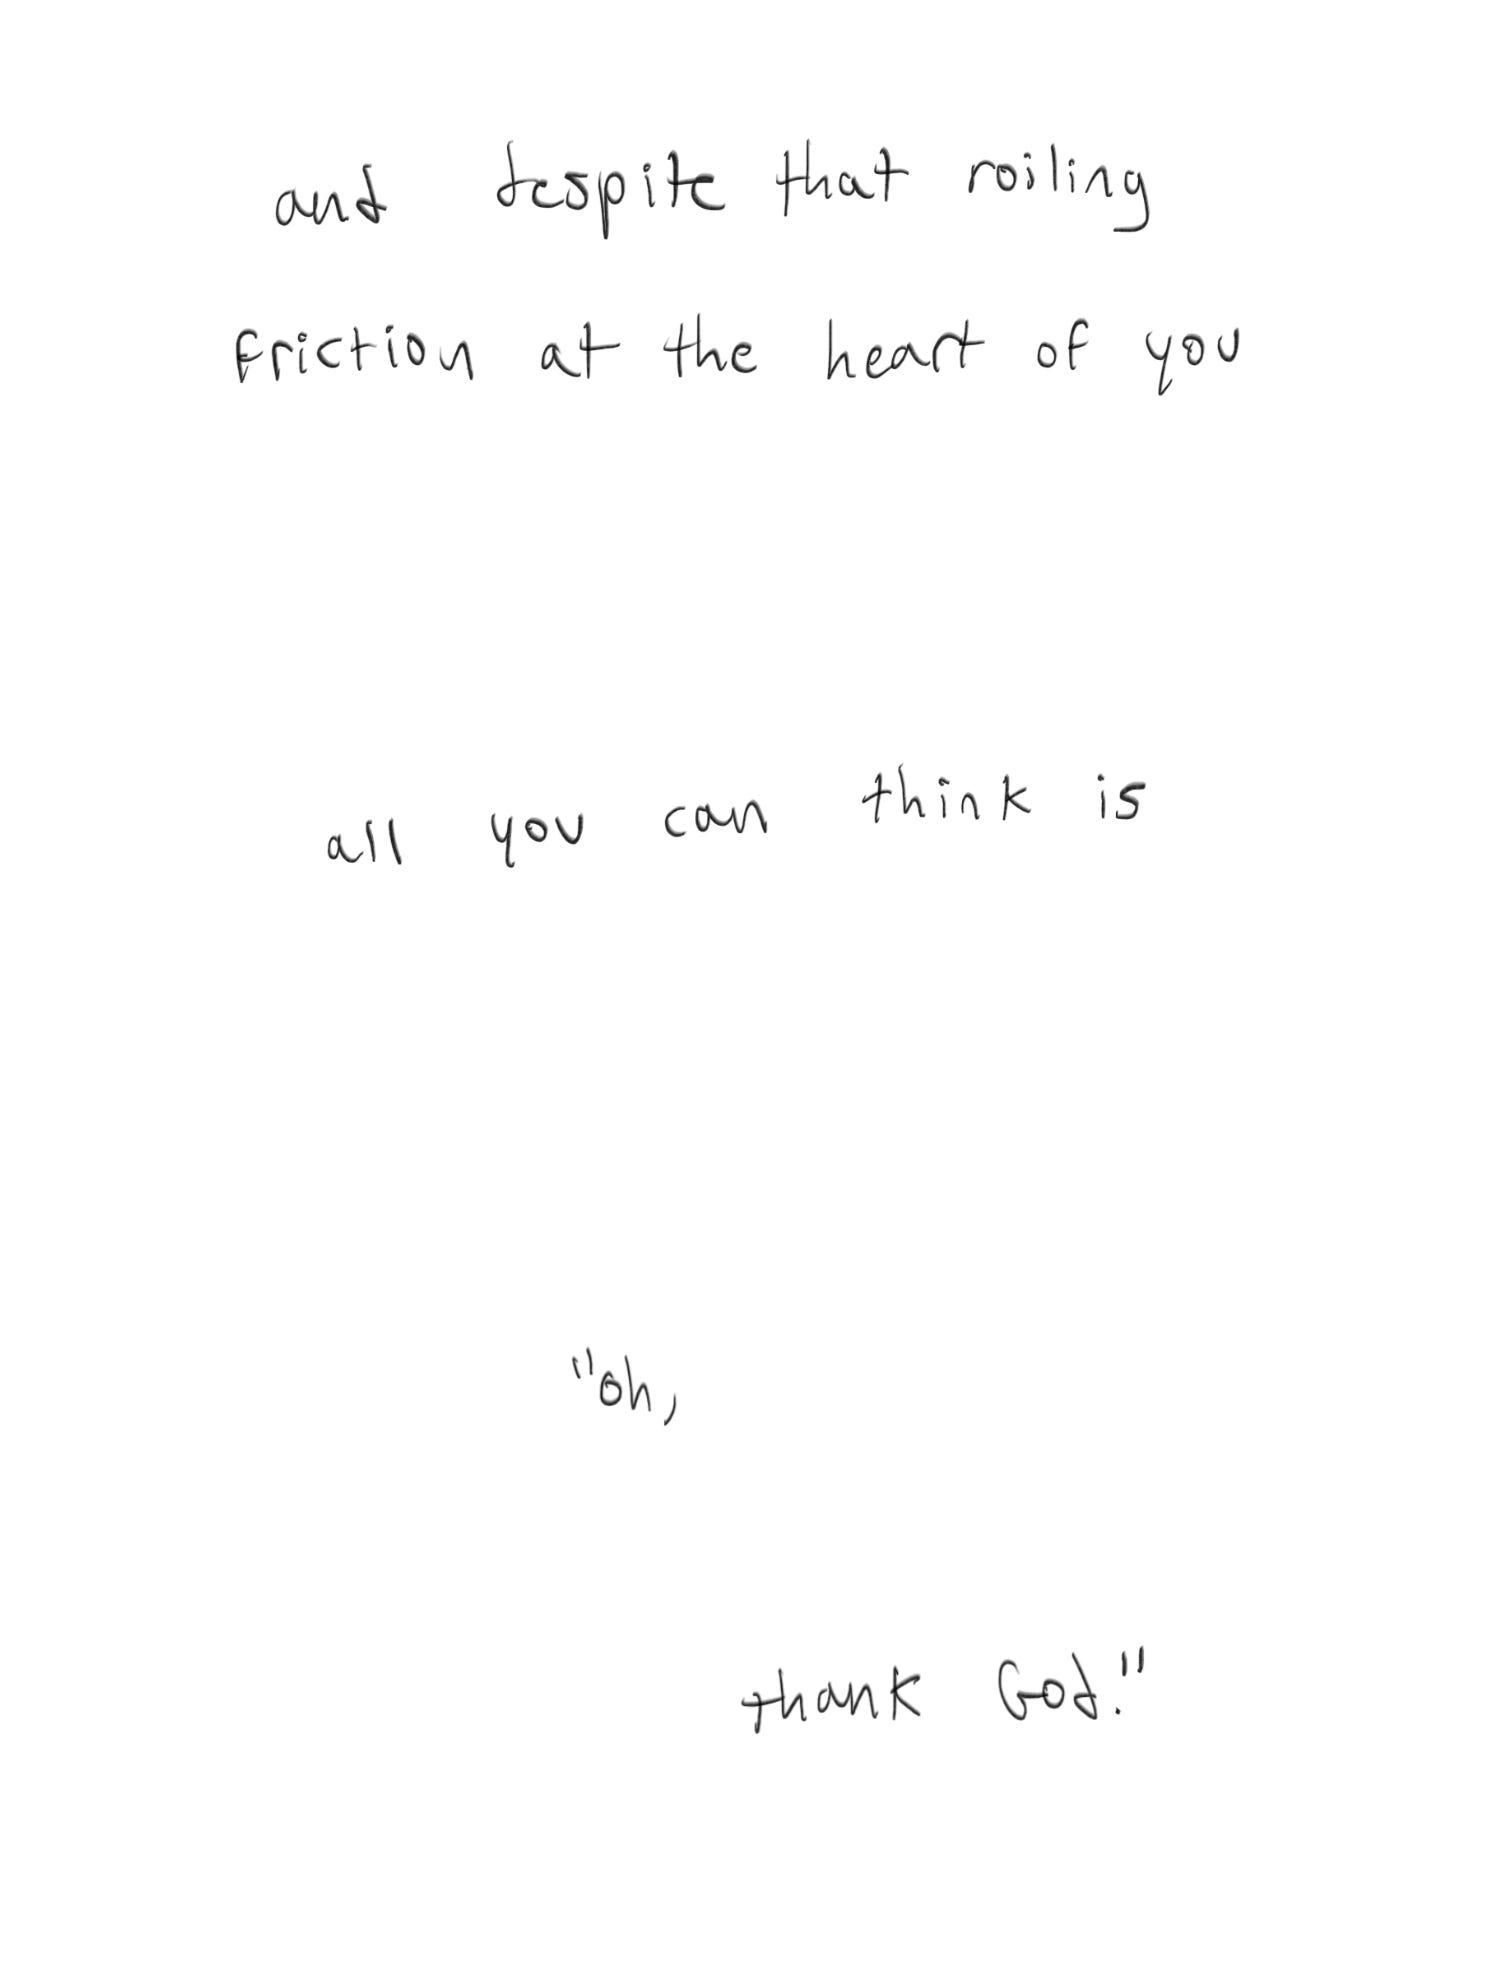 and despite that roiling
friction at the heart of you
all you can think is
"oh,
thank God."